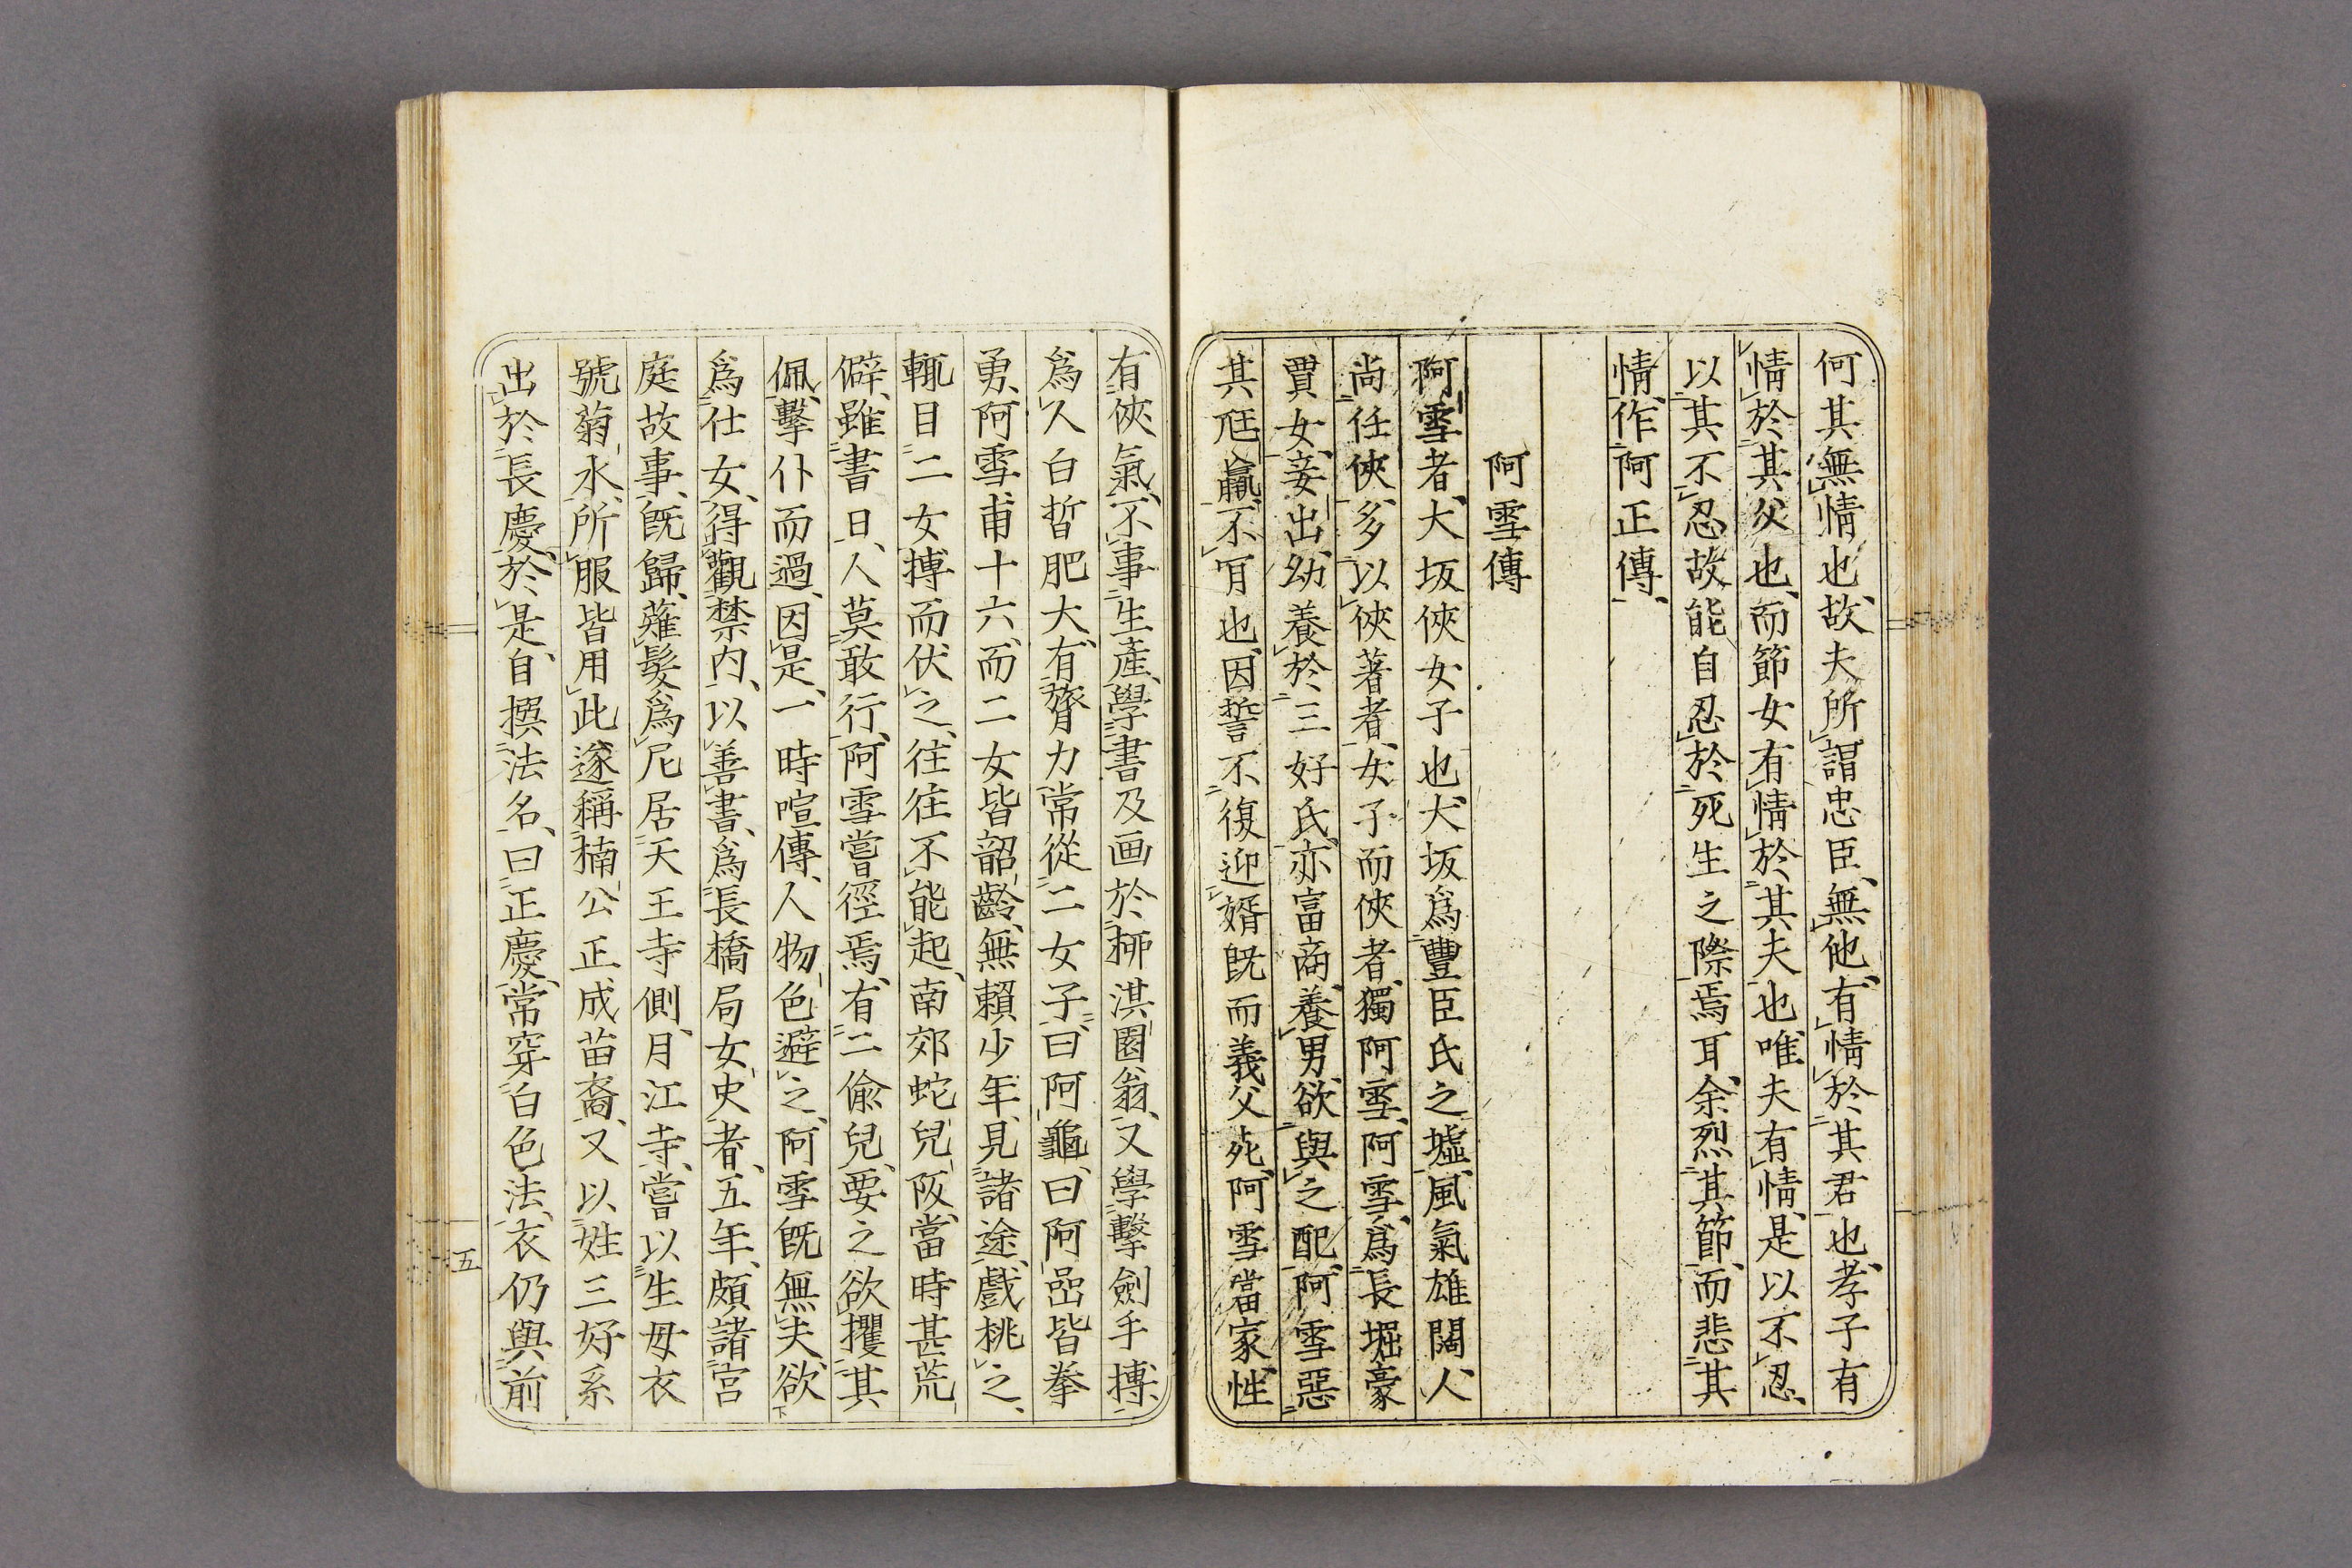 何其無情也、故夫所謂忠臣、無他、有情於其君也、孝子有
情於其父也、而節女有情於其夫也、唯夫有情、是以不忍、
以其不忍故能自忍於死生之際焉耳、余烈其節、而悲其
情、作阿正傳、
阿雪傳
阿雪者、大坂俠女子也、大坂爲豐臣氏之墟、風氣雄闊、人
尚任俠、多以俠著者、女子而俠者、獨阿雪、阿雪、爲長堀豪
賈女、妾出、幼養於三好氏、亦富商、養男、欲與之配、阿雪惡
其尫羸、不肎也、因誓不復迎婿、既而義父死、阿雪當家、性
有俠氣、不事生產、學書及画於柳淇園翁、又學擊劍手搏、
爲人白晳肥大、有膂力、常從二女子、曰阿龜、曰阿嵒、皆拳
勇、阿雪甫十六、而二女皆韶齡、無賴少年、見諸途、戲桃之、
輒目二女、搏而伏之、往往不能起、南郊蛇兒阪、當時甚荒
僻、雖書日、人莫敢行、阿雪嘗徑焉、有二偸兒、要之欲攫其
佩、擊仆而過、因是、一時喧傳、人物色避之、阿雪既無夫、欲
爲仕女、得觀禁内、以善書、爲長橋局女史者、五年、頗諸宮
庭故事、既歸、薙髮爲尼居天王寺側、月江寺、嘗以生母衣
號菊水、所服皆用此、遂稱楠公正成苗裔、又以姓三好系
出於長慶、於是、自撰法名、曰正慶、常穿白色法衣、仍與前
五